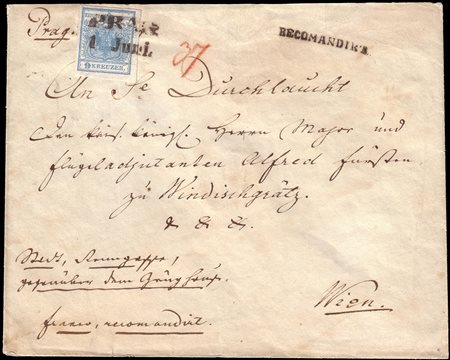 Prag.
PRAG
1 Juni.
9 KREUZER
37
RECOMANDIRT.
An Se Durchlaucht
Den kais. königl. Herrn Major und
Flügeladjutanten Alfred Fürsten
zu Windischgrätz.
& & &.
Stadt, Renngasse,
gegenüber dem Zeughause.
franco, recomandirt.
Wien.